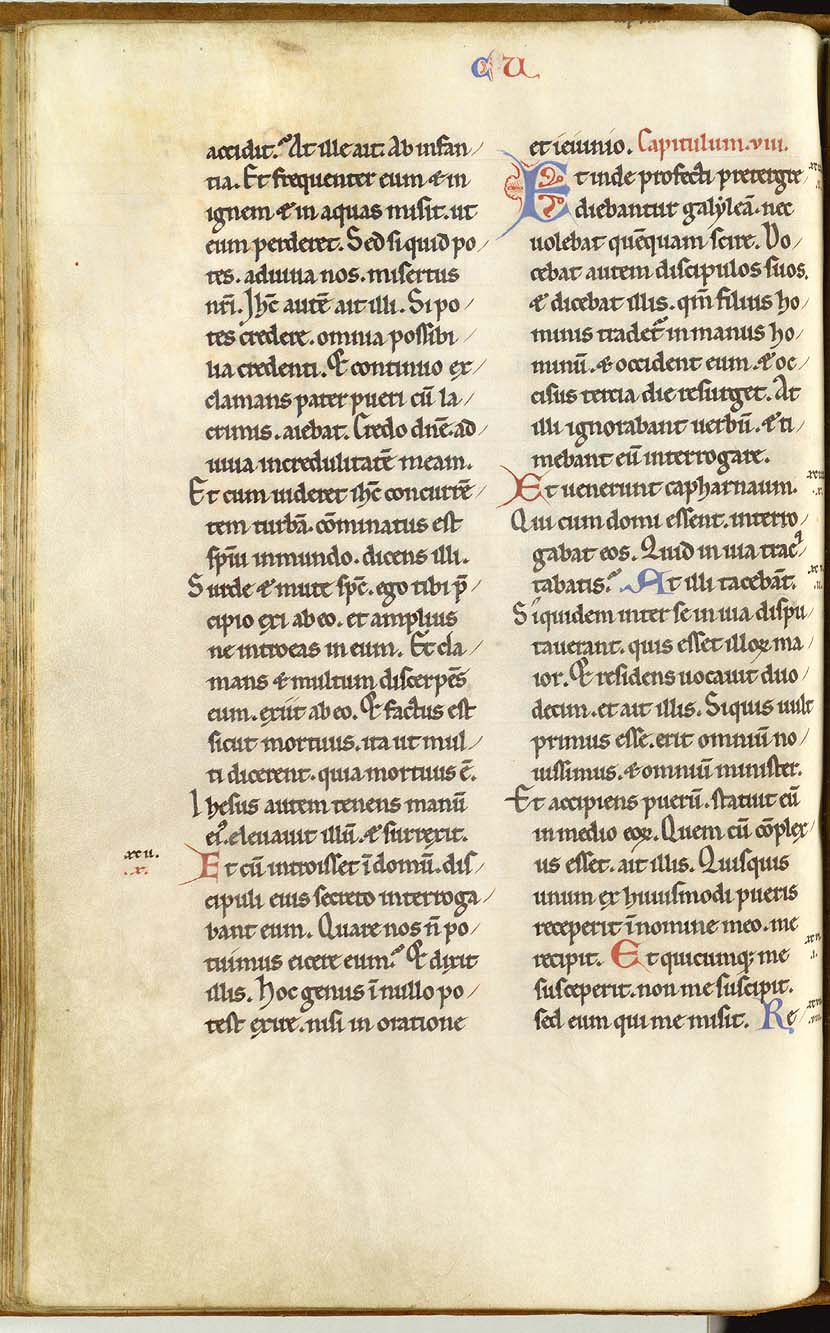 C U
accidit. At ille ait. Ab infan/
tia. Et frequenter eum & in
ignem & in aquas misit. ut
eum perderet. Sed si quid po/
tes. adiuua nos. misertus
nr̄i. Jhc̄ autē ait illi. Si po/
tes credere. omnia possibi/
lia credenti. Et continuo ex/
clamans pater pueri cū la/
crimis. aiebat. Credo dn̄e. ad/
iuua incredulitatē meam.
Et cum uideret ihc̄ concurrē/
tem turbā. cōminatus est
spīui inmundo. dicens illi.
Surde & mute spc̄. ego tibi p̄/
cipio exi ab eo. et amplius
ne introeas in eum. Et cla/
mans & multum discerpēs
eum. exiit ab eo. Et factus est
sicut mortuus. ita ut mul/
ti dicerent. quia mortuus ē.
Ihesus autem tenens manū
ei'. eleuauit illū. & surrexit.
xcii.
.x.
Et cū introisset ī domū. dis/
cipuli eius secreto interroga/
bant eum. Quare nos n̄ po/
tuimus eicere eum. Et dixit
illis. Hoc genus ī nullo po/
test exire. nisi in oratione
et ieiunio. Capitulum. viii.
Et inde profecti pretergre/
diebantur galyleā. nec
uolebat quēquam scire. Do/
cebat autem discipulos suos.
& dicebat illis. qm̄ filius ho/
minis tradet᷑ in manus ho/
minū. & occident eum. & oc/
cisus tercia die resurget. At
illi ignorabant uerbū. & ti/
mebant eū interrogare.
Et uenerunt capharnaum.
Qui cum domi essent. interro/
gabat eos. Quid in uia trac/
tabatis. At illi tacebāt.
Siquidem inter se in uia dispu/
tauerant. quis esset illoꝝ ma/
ior. Et residens uocauit duo/
decim. et ait illis. Si quis uult
primus esse. erit omniū no/
uissimus. & omniū minister.
Et accipiens puerū. statuit eū
in medio eoꝝ. Quem cū cōplex/
us esset. ait illis. Quisquis
unum ex huiusmodi pueris
receperit ī nomine meo. me
recipit. Et quicumq; me
susceperit. non me suscipit.
sed eum qui me misit. Re/